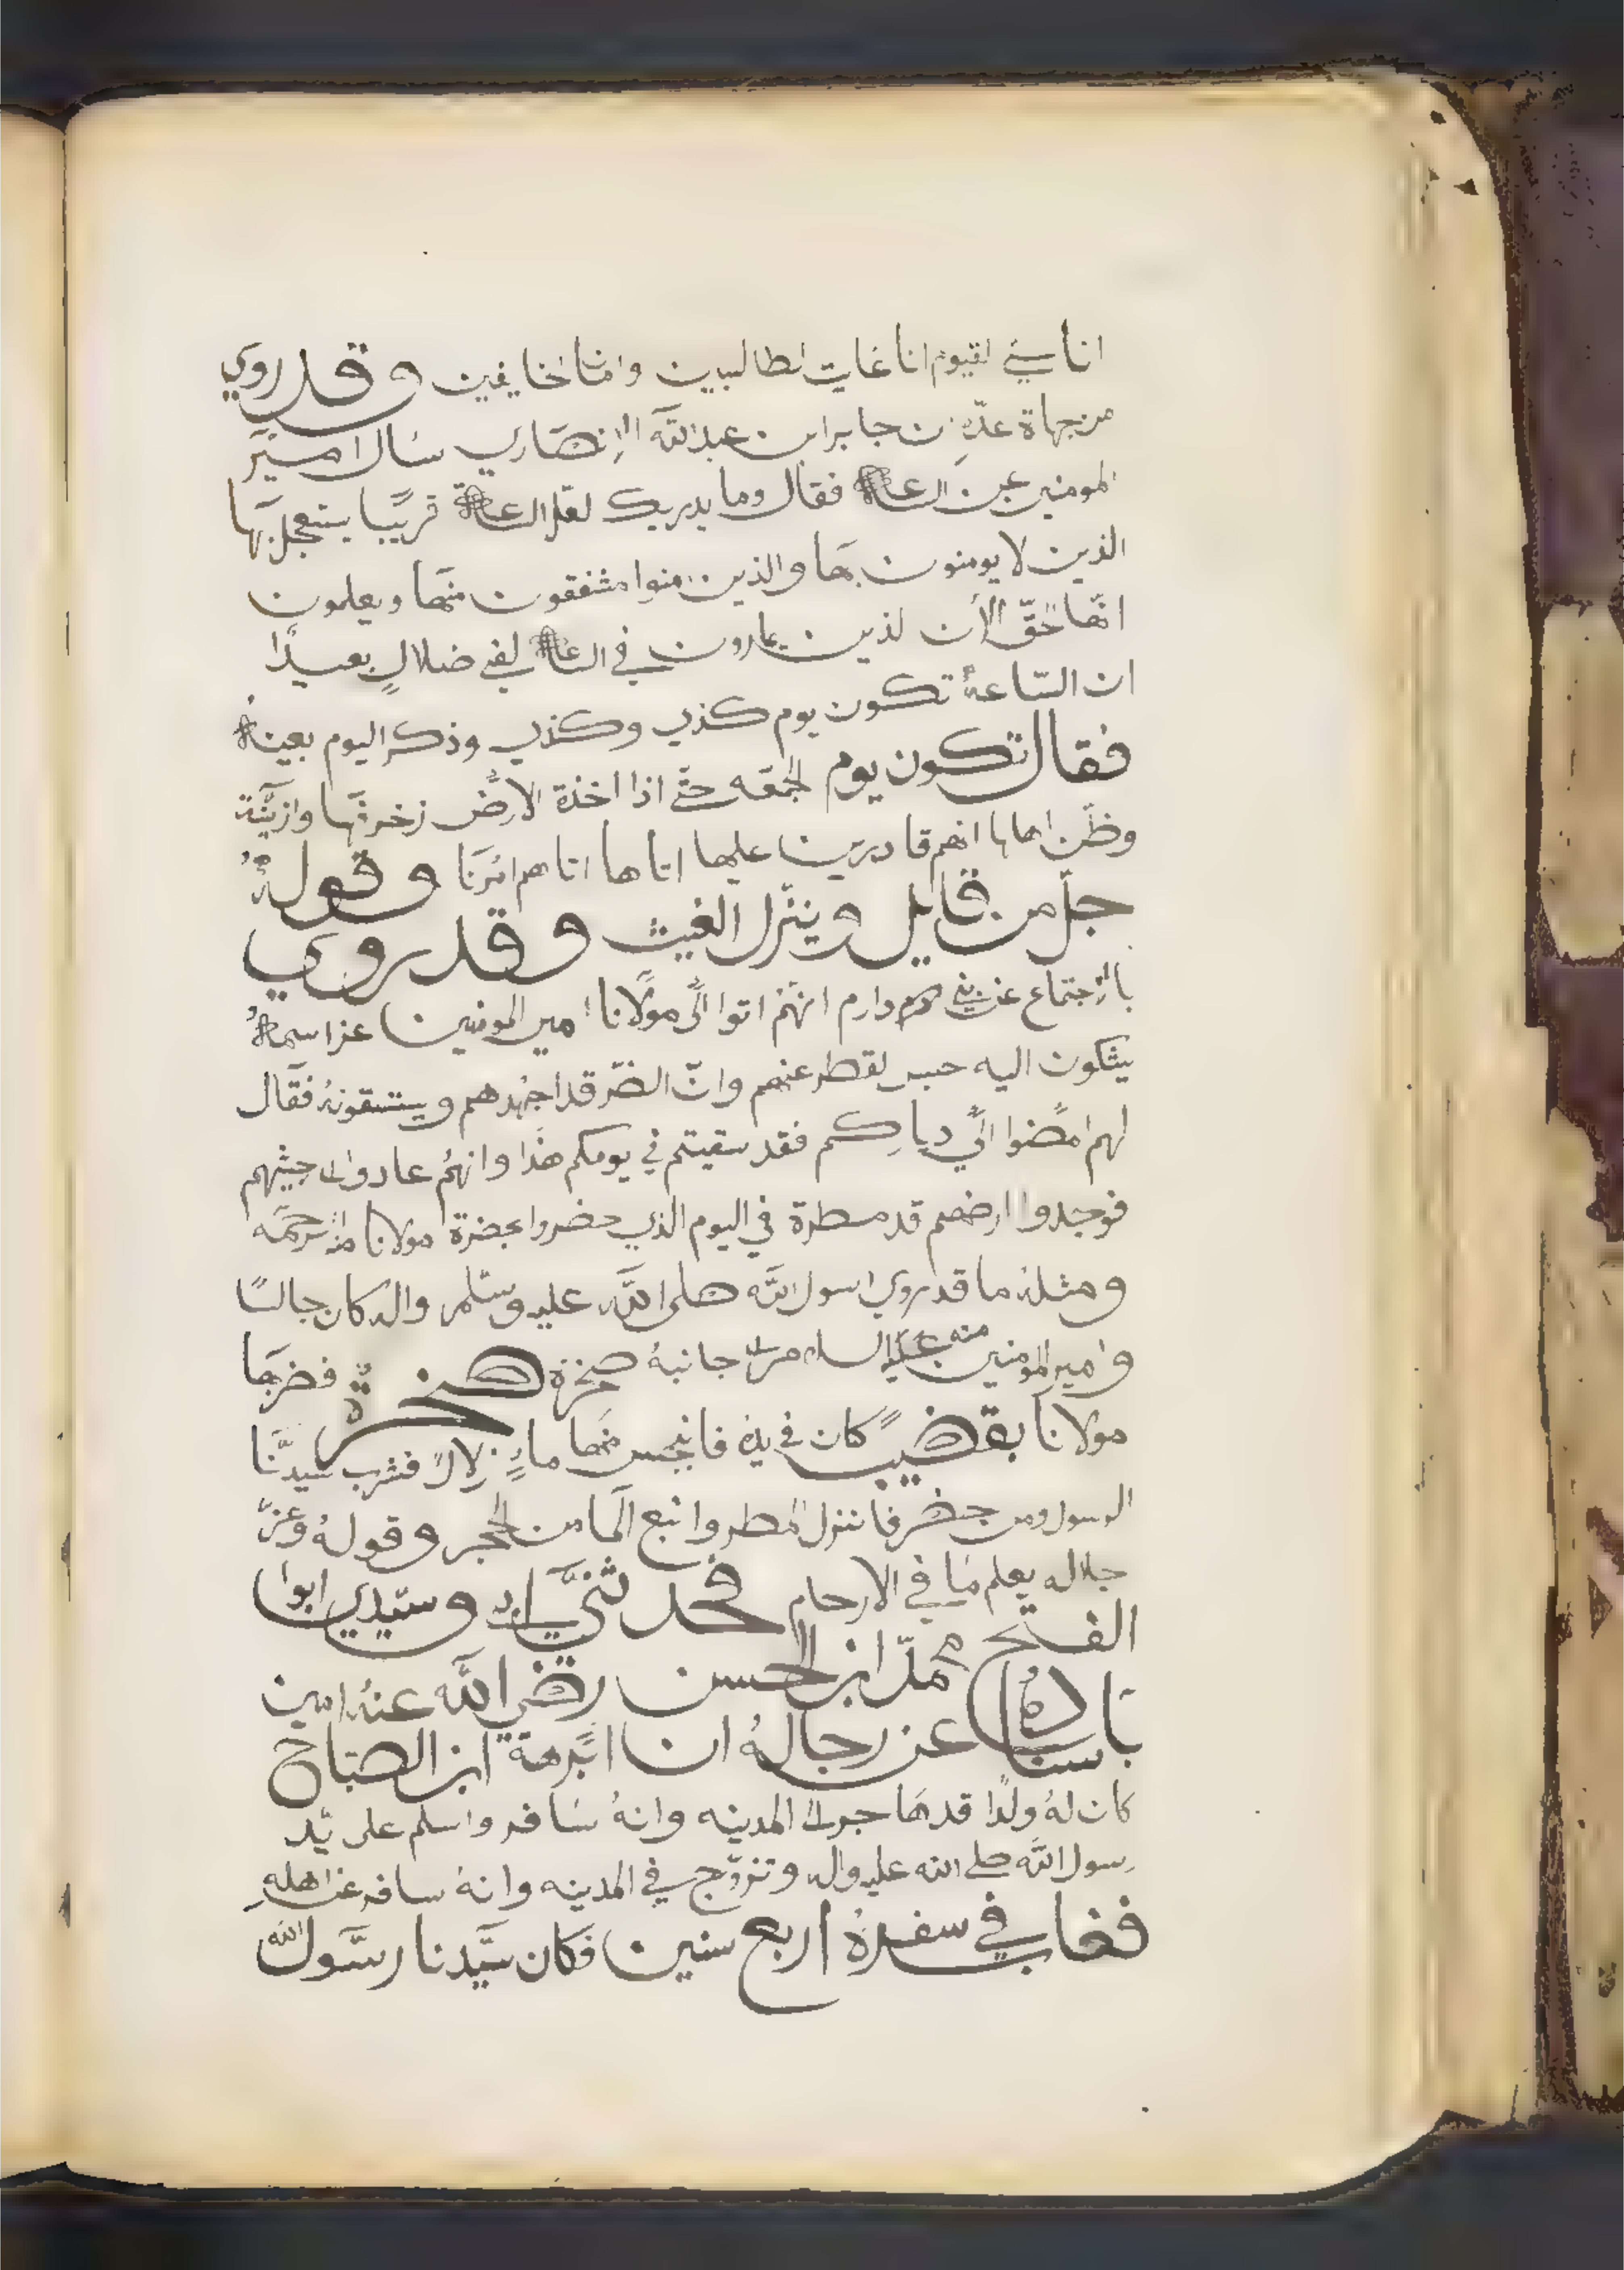 انا القيوم انا غايت الطالبين وامنا الخايفين وقد روي
من جهاة عدّه ان جابر ابن عبد الله الانصاري سال امير
المومنين عن الساعة فقال وما يدريك لعل الساعة قريبا يستعجل بها
الذين لا يومنون بها والذين امنوا مشفقون منها ويعلمون
انها الحق الا ان الذين يمارون في الساعة لفي ضلال بعيدا
ان الساعة تكون يوم كذي وكذي وذكر اليوم بعينه
فقال تكون يوم الجمعه حتى اذا اخذة الارض زخرفها وازينة
وظن اهلها انهم قادرين عليها اتاها اتاهم امرنا وقوله
جل من قايل وينزل الغيث وقد روي
بالاجتماع عن بني دارم انهم اتوا الى مولانا امير المومنين عز اسمه
يشكون اليه حبس القطر عنهم وان الضر قد اجهدهم ويستسقونه فقال
لهم امضوا الى دياركم فقد سقيتم في يومكم هذا وانهم عادوا الى حيثهم
فوجدوا ارضهم قد مطرة في اليوم الذي حضروا بحضرة مولانا منه الرحمه
ومثله ما قد روي رسول الله صلى الله عليه وسلم واله كان جالسا
وامير المومنين منه السلام الى جانبه صخرة صخرة فضربها
مولانا بقضيب كان في يده فانبجس منها ماء زلالا فشرب سيدنا
الرسول ومن حضر فانزل المطر وانبع الما من الحجر وقوله وعز
جلاله يعلم ما في الارحام فحدثني وسيدي ابوا
الفتح محمد ابن الحسن رضي الله عنه امين
باسناده عن رجاله ان ابرهة ابن الصباح
كان له ولدا قد هاجر الى المدينه وانه سافر واسلم على يد
رسول الله صلى الله عليه واله وتزوج في المدينه وانه سافر عن اهله
فغاب في سفرة اربع سنين فكان سيدنا رسول الله